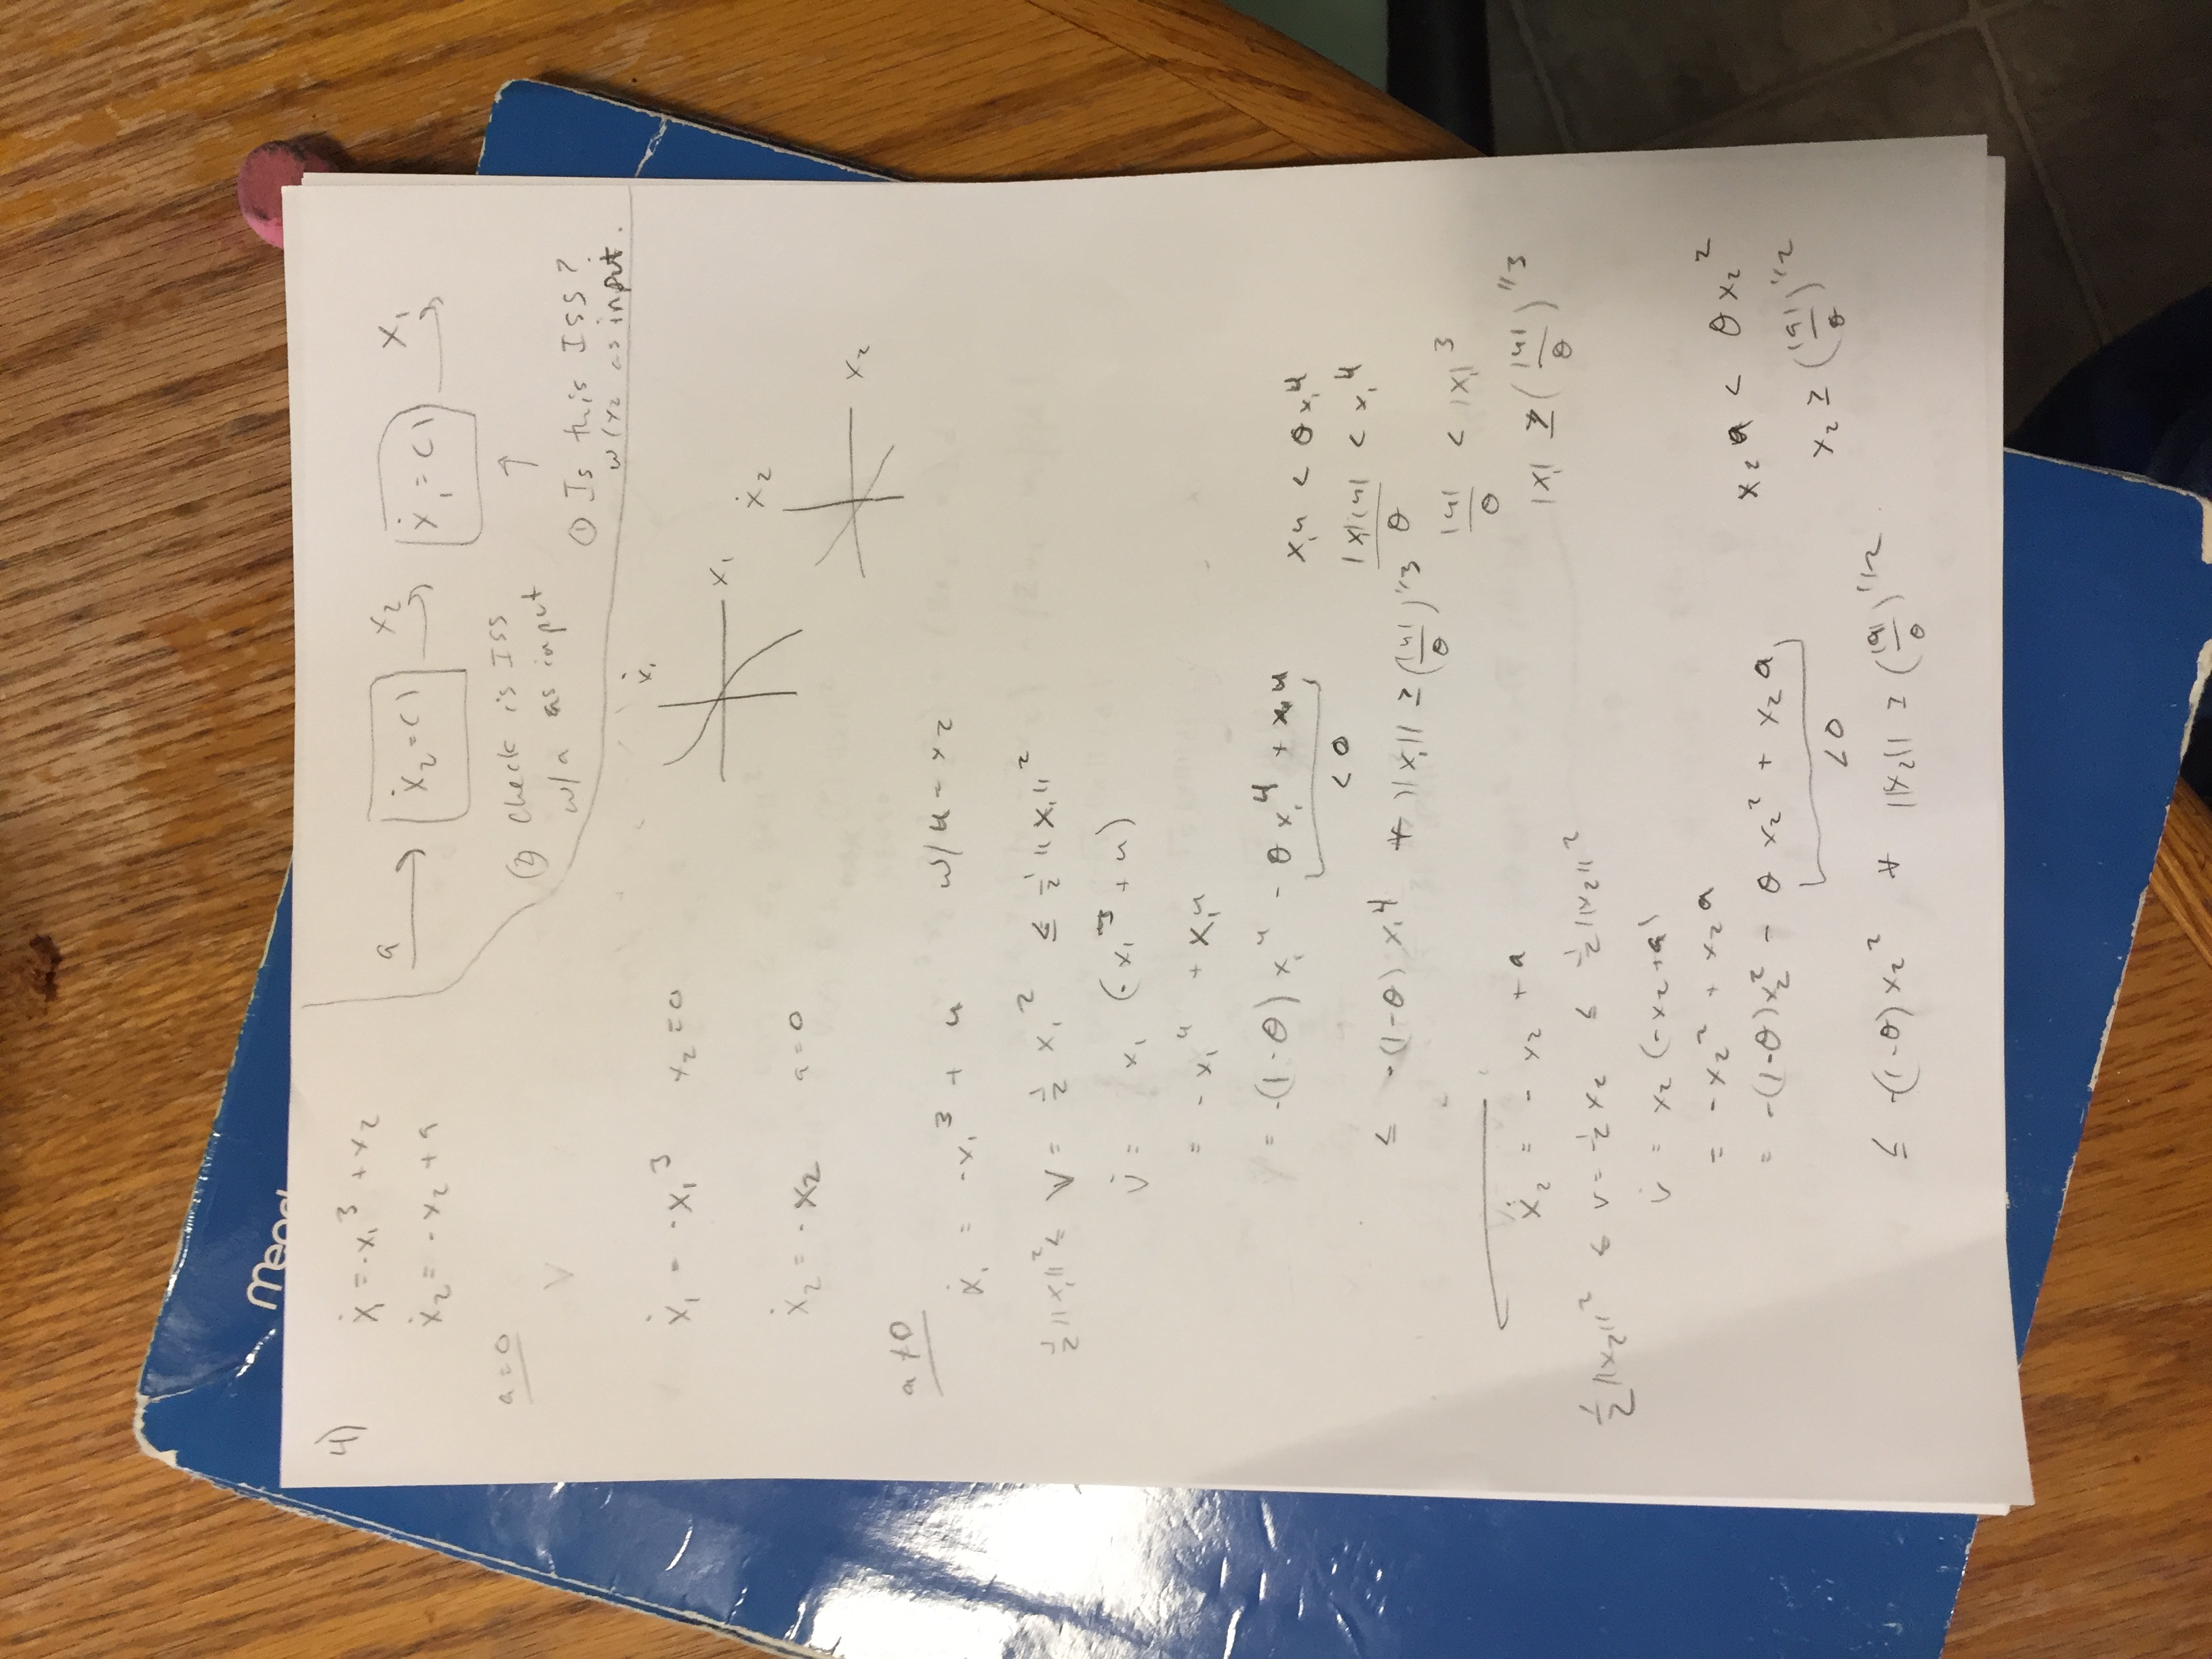 Mead
4)
ẋ₁ = -x₁³ + x₂
ẋ₂ = -x₂ + a
a → ẋ₂ = ( ) → x₂ → ẋ₁ = ( ) → x₁
② Check is ISS
w/a as input
↑
① Is this ISS?
w/ x₂ as input.
a = 0
V
ẋ₁ = -x₁³ x₂ = 0
ẋ₁
x₁
ẋ₂ = -x₂ a = 0
ẋ₂
x₂
a ≠ 0
ẋ₁ = -x₁³ + u w/ u = x₂
½||x₁||² ≤ V = ½ x₁² ≤ ½||x₁||²
V̇ = x₁ (-x₁³ + u)
= -x₁⁴ + x₁u
= -(1-θ) x₁⁴ - θx₁⁴ + x₁u
< 0
≤ -(1-θ) x₁⁴ ∀ ||x₁|| ≥ (|u|/θ)^1/3
x₁u < θx₁⁴
|x₁||u|/θ < x₁⁴
|u|/θ < |x₁|³
|x₁| ≥ (|u|/θ)^1/3
ẋ₂ = -x₂ + a
½||x₂||² ≤ v = ½ x₂ ≤ ½||x₂||²
v̇ = x₂ (-x₂ + a)
= -x₂² + x₂a
= -(1-θ)x₂² - θ x₂² + x₂a
< 0
≤ -(1-θ) x₂² ∀ ||x₂|| ≥ (|a|/θ)^1/2
x₂a < θx₂²
x₂ ≥ (|a|/θ)^1/2